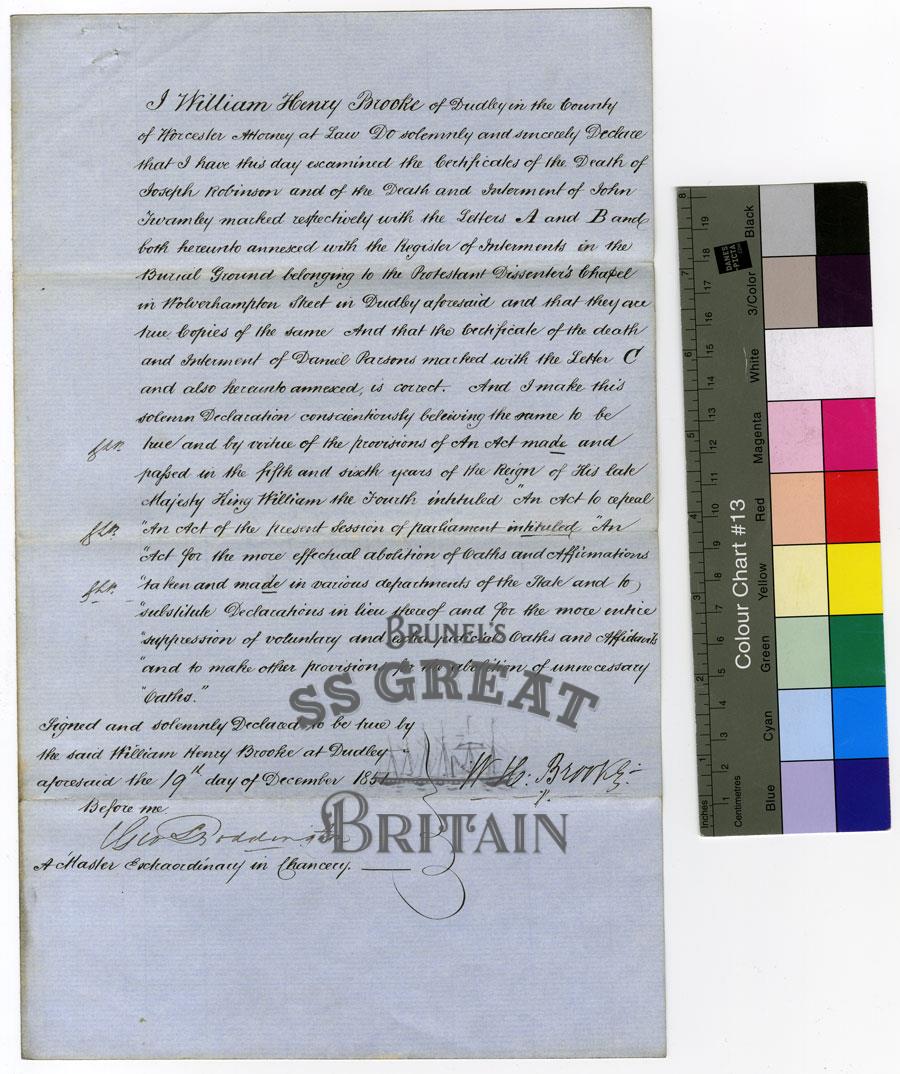 I William Henry Brooke of Dudley in the County
of Worcester Attorney at Law Do solemnly and sincerely Declare
that I have this day examined the Certificates of the Death of
Joseph Robinson and of the Death and Interment of John
Twamley marked respectively with the Letters A and B and
both hereunto annexed with the Register of Interments in the
Burial Ground belonging to the Protestant Dissenter's Chapel
in Wolverhampton Street in Dudley aforesaid and that they are
true Copies of the same And that the Certificate of the death
and Interment of Daniel Parsons marked with the Letter C
and also hereunto annexed, is correct. And I make this
solemn Declaration conscientiously beleiving the same to be
true and by virtue of the provisions of An Act made and
passed in the fifth and sixth years of the Reign of His late
Majesty King William the Fourth intituled "An Act to repeal
"An Act of the present Session of parliament intituled "An
"Act for the more effectual abolition of Oaths and Affirmations
"taken and made in various departments of the State and to
"substitute Declarations in lieu thereof and for the more entire
"suppression of voluntary and extra judicial Oaths and Affidavits
"and to make other provisions for the abolition of unnecessary
"Oaths."
Signed and solemnly Declared to be true by
the said William Henry Brooke at Dudley
aforesaid the 19th day of December 185
W. H. Brooke
Before me
A Master Extraordinary in Chancery.
BRUNEL'S
SS GREAT
BRITAIN
Colour Chart #13
DANES PICTA
.COM
Blue Cyan Green Yellow Red Magenta White 3/Color Black
Inches 1 2 3 4 5 6 7 8
Centimetres 1 2 3 4 5 6 7 8 9 10 11 12 13 14 15 16 17 18 19